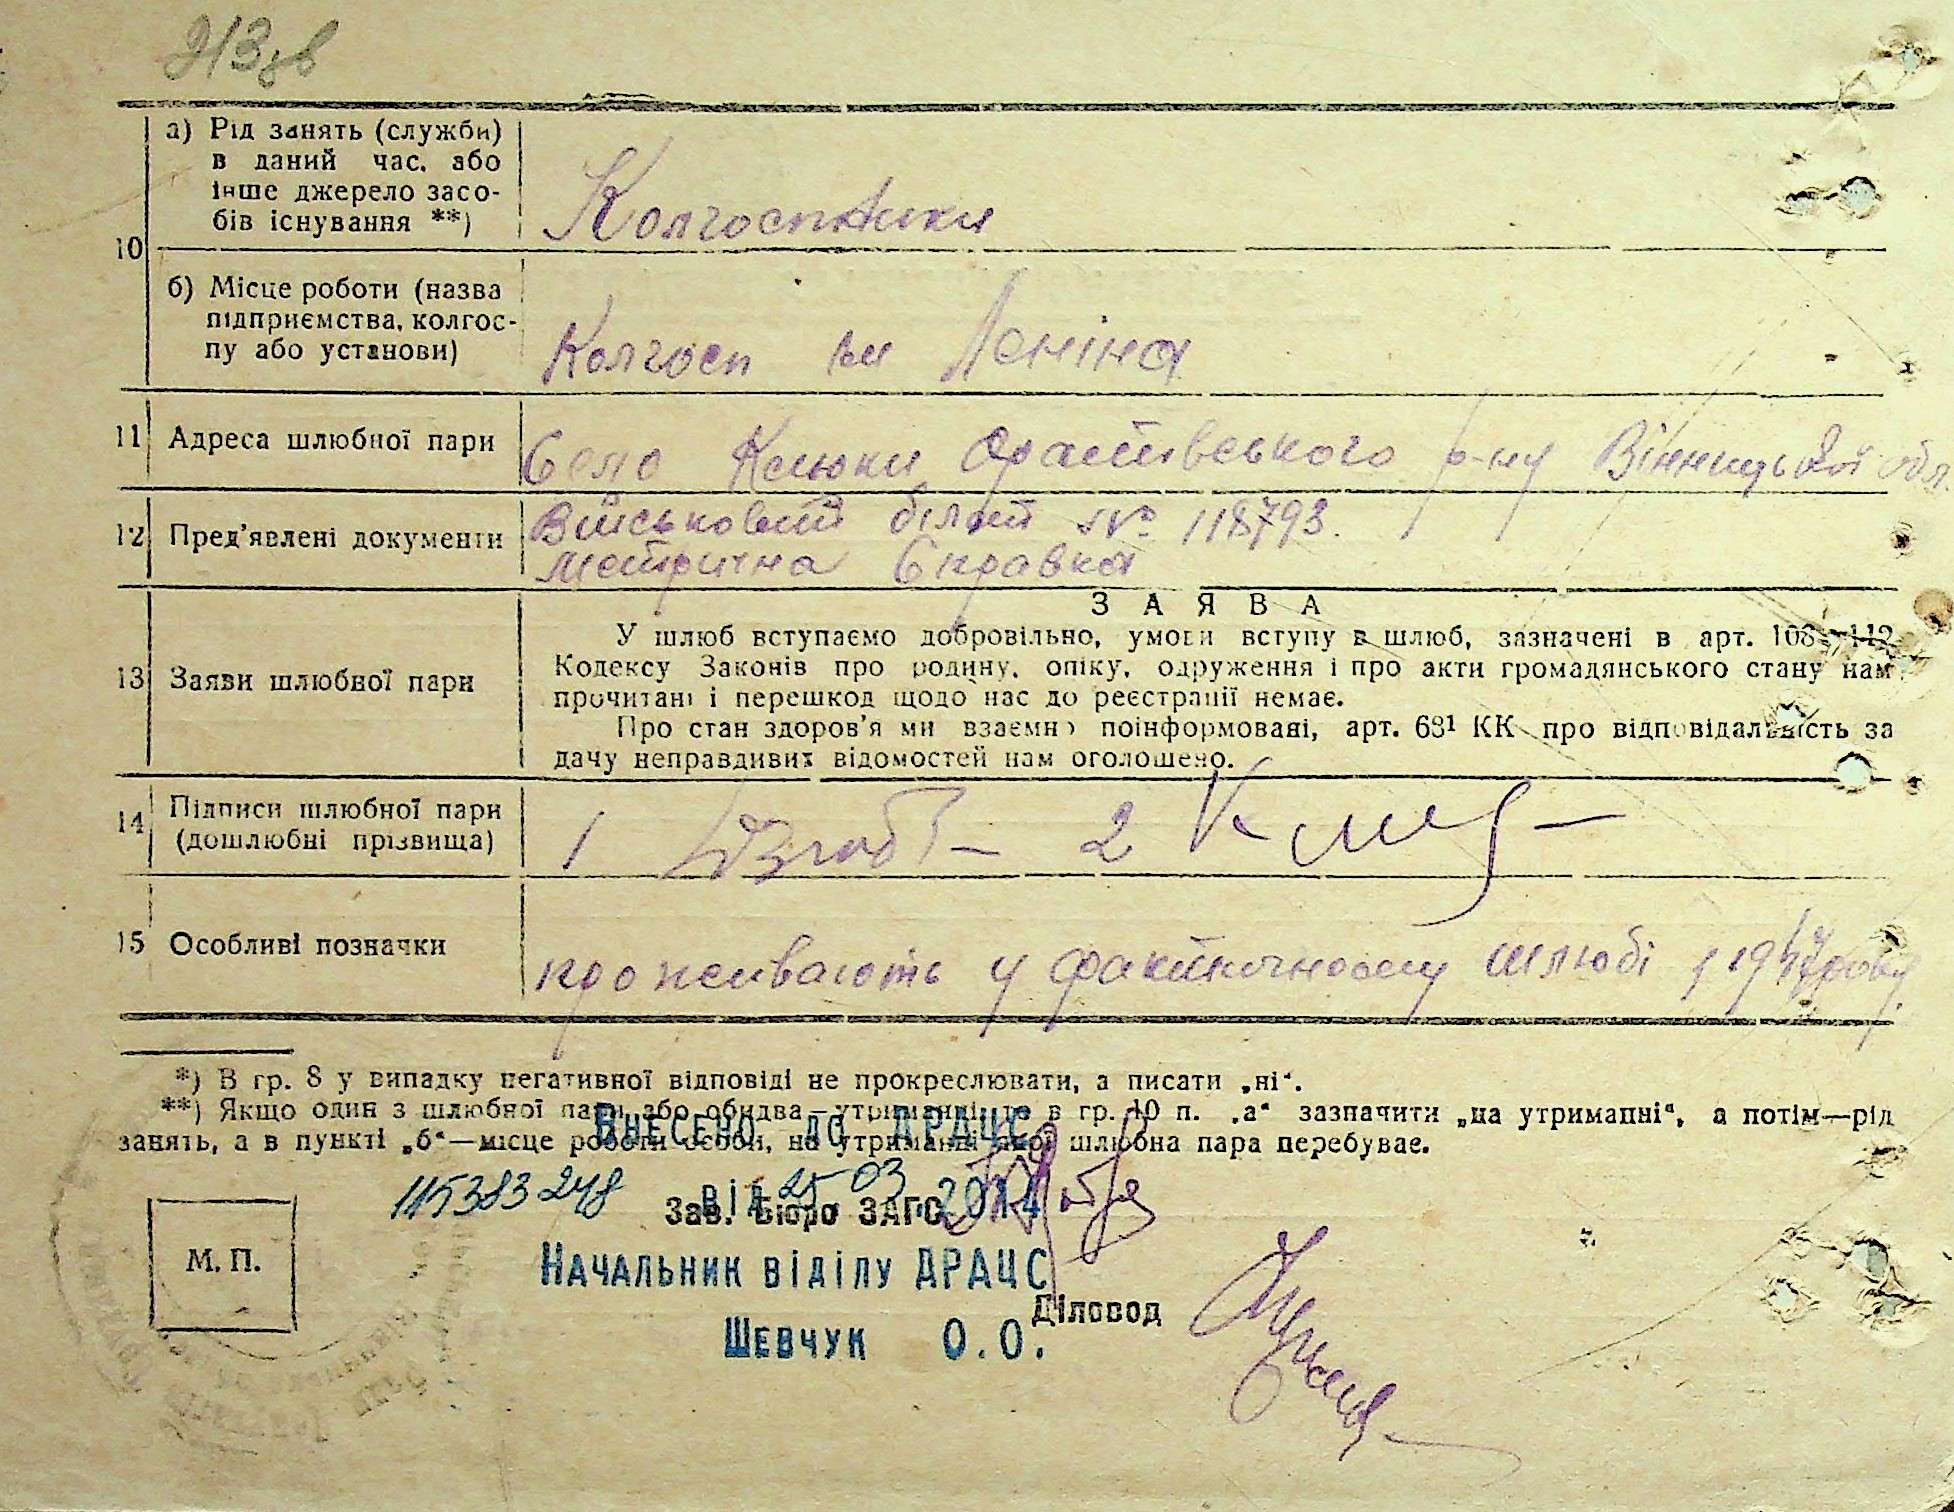 213 зв
10
а) Рід занять (служби)
в даний час, або
інше джерело засо-
бів існування **)
Колгоспники
б) Місце роботи (назва
підприємства, колгос-
пу або установи)
Колгосп ім Леніна
11 Адреса шлюбної пари
Село Клюки Оратівського р-ну Вінницької обл.
12 Пред'явлені документи
Військовий білет № 118793.
метрична Справка
13 Заяви шлюбної пари
ЗАЯВА
У шлюб вступаємо добровільно, умови вступу в шлюб, зазначені в арт. 108-112
Кодексу Законів про родину, опіку, одруження і про акти громадянського стану нам
прочитані і перешкод щодо нас до реєстрації немає.
Про стан здоров'я ми взаємно поінформовані, арт. 68¹ КК про відповідальність за
дачу неправдивих відомостей нам оголошено.
14 Підписи шлюбної пари
(дошлюбні прізвища)
1 2
15 Особливі позначки
проживають у фактичному шлюбі з 1947 року
*) В гр. 8 у випадку негативної відповіді не прокреслювати, а писати „ні“.
**) Якщо один з шлюбної пари або обидва—утриманні, то в гр. 10 п. „а“ зазначити „на утриманні“, а потім—рід
занять, а в пункті „б“—місце роботи особи, на утриманні якої шлюбна пара перебуває.
Внесено до ДРАЦС
115383248 від 25.03.2014
Зав. Бюро ЗАГС
М. П.
Начальник відділу ДРАЦС
Діловод
Шевчук О.О.